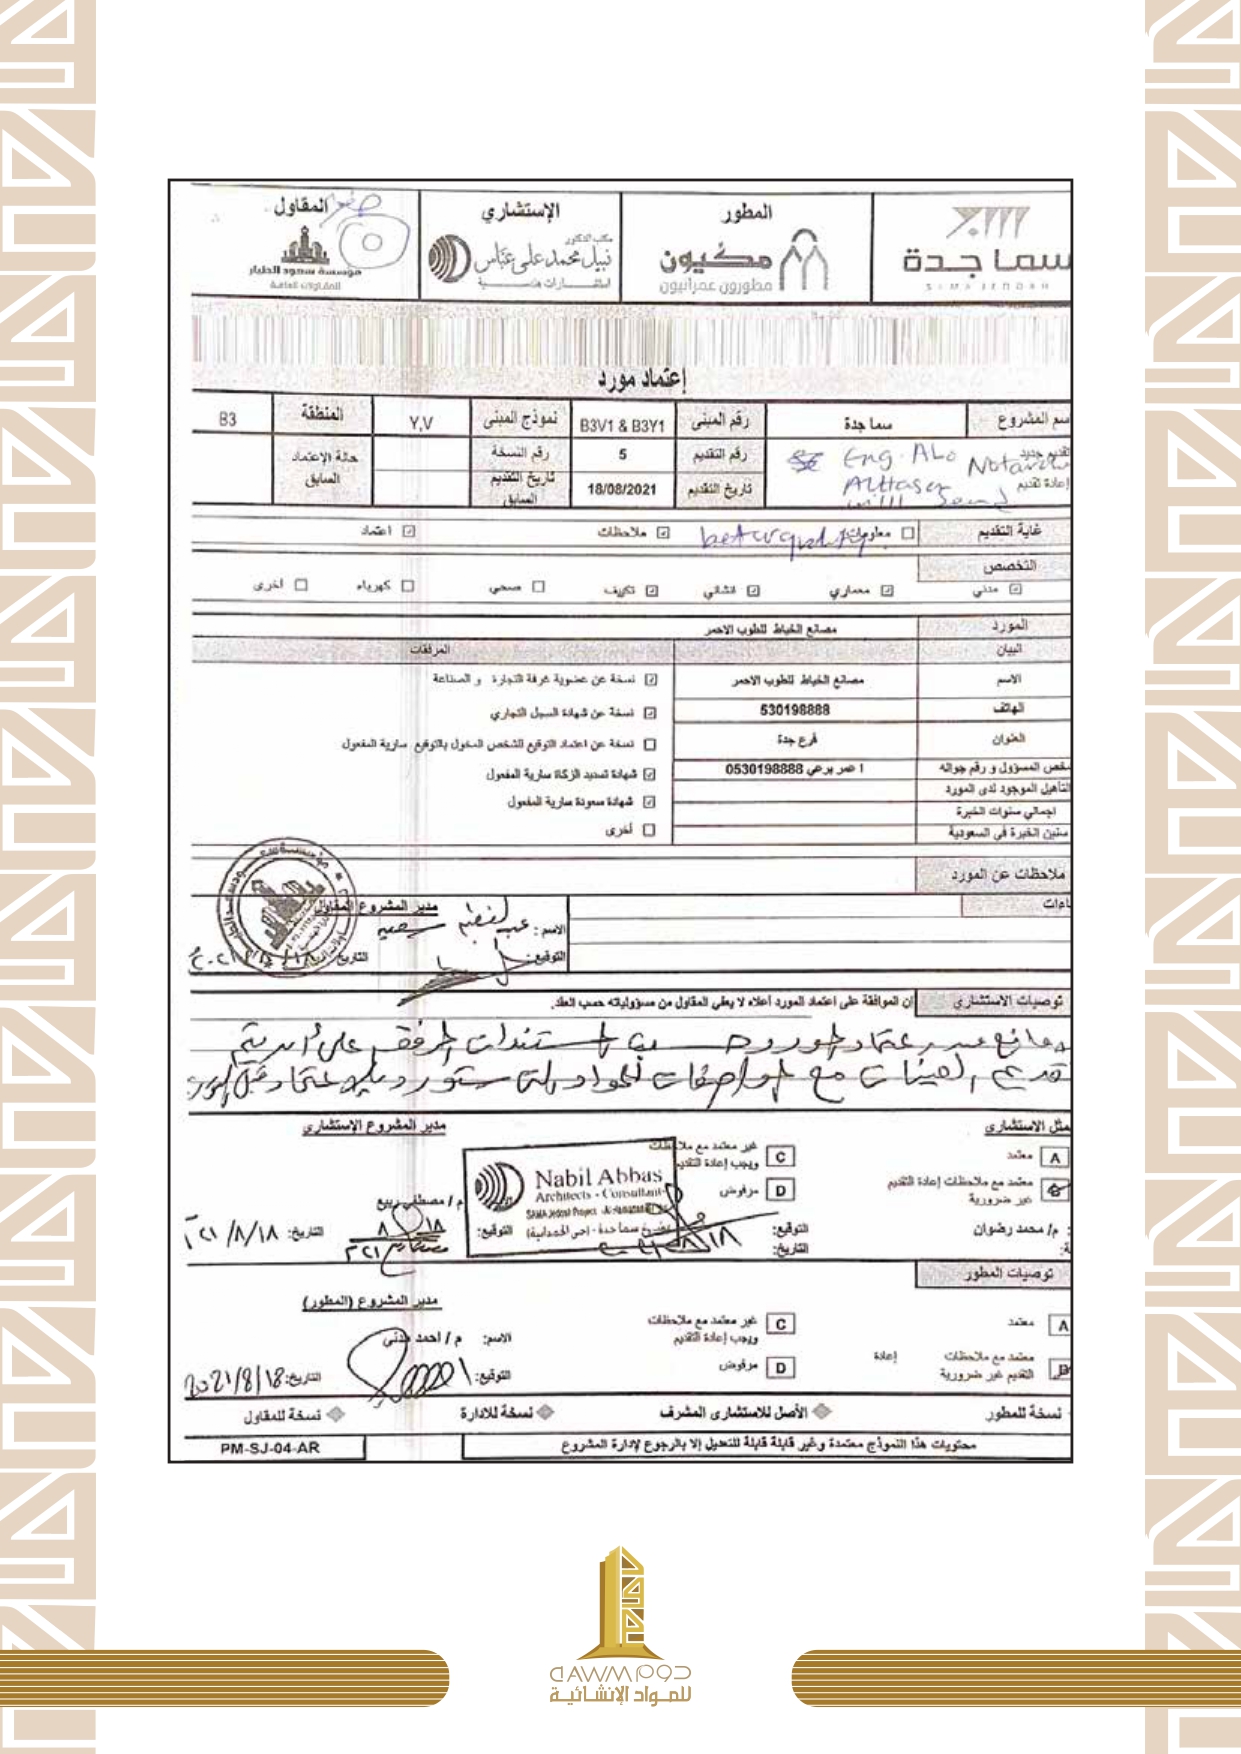 المطور
الإستشاري
المقاول
سما جدة
SAMA JEDDAH
مكيون
مطورون عمرانيون
مكتب الدكتور
نبيل محمد علي عباس
استشارات هندسية
مؤسسة سعود الطيار
للمقاولات العامة
إعتماد مورد
سم المشروع
سما جدة
رقم المبنى
B3V1 & B3Y1
نموذج المبنى
Y,V
المنطقة
B3
تقديم جديد
إعادة تقديم
Eng. Abo
will send
better quality
رقم التقديم
5
رقم النسخة
حالة الإعتماد السابق
تاريخ التقديم
18/08/2021
تاريخ التقديم السابق
غاية التقديم
معلومات
ملاحظات
اعتماد
التخصص
مدني
معماري
انشائي
تكييف
صحي
كهرباء
اخرى
المورد
مصانع الخياط للطوب الاحمر
البيان
المرفقات
الاسم
مصانع الخياط للطوب الاحمر
نسخة عن عضوية غرفة التجارة و الصناعة
الهاتف
530198888
نسخة عن شهادة السجل التجاري
العنوان
فرع جدة
نسخة عن اعتماد التوقيع للشخص المخول بالتوقيع سارية المفعول
شخص المسؤول و رقم جواله
ا عمر برعي 0530198888
شهادة تسديد الزكاة سارية المفعول
التأهيل الموجود لدى المورد
شهادة سعودة سارية المفعول
اجمالي سنوات الخبرة
أخرى
سنين الخبرة في السعودية
ملاحظات عن المورد
اءات
مدير المشروع المقاول
الاسم:
التوقيع:
التاريخ
توصيات الاستشاري
إن الموافقة على اعتماد المورد أعلاه لا يعفي المقاول من مسؤولياته حسب العقد.
مانع من اعتماد المورد حسب المستندات المرفقة على أن يتم
تقديم العينات مع المواصفات للمواد التي ستورد
مثل الاستشاري
مدير المشروع الإستشاري
A معتمد
C غير معتمد مع ملاحظات ويجب إعادة التقديم
معتمد مع ملاحظات إعادة التقديم غير ضرورية
D مرفوض
Nabil Abbas
Architects - Consultant
SAMA Jeddah Project
م/ محمد رضوان
التوقيع:
التاريخ:
م / مصطفى ربيع
التوقيع:
١٨
٨
التاريخ: ١٨/٨/٢١
توصيات المطور
مدير المشروع (المطور)
A معتمد
C غير معتمد مع ملاحظات ويجب إعادة التقديم
الاسم: م / احمد مدني
B معتمد مع ملاحظات إعادة التقديم غير ضرورية
D مرفوض
التوقيع:
التاريخ: 2021/8/18
نسخة للمطور
الأصل للاستشاري المشرف
نسخة للادارة
نسخة للمقاول
محتويات هذا النموذج معتمدة وغير قابلة للتعديل إلا بالرجوع لإدارة المشروع
PM-SJ-04-AR
DAWM دوم
للمواد الإنشائية